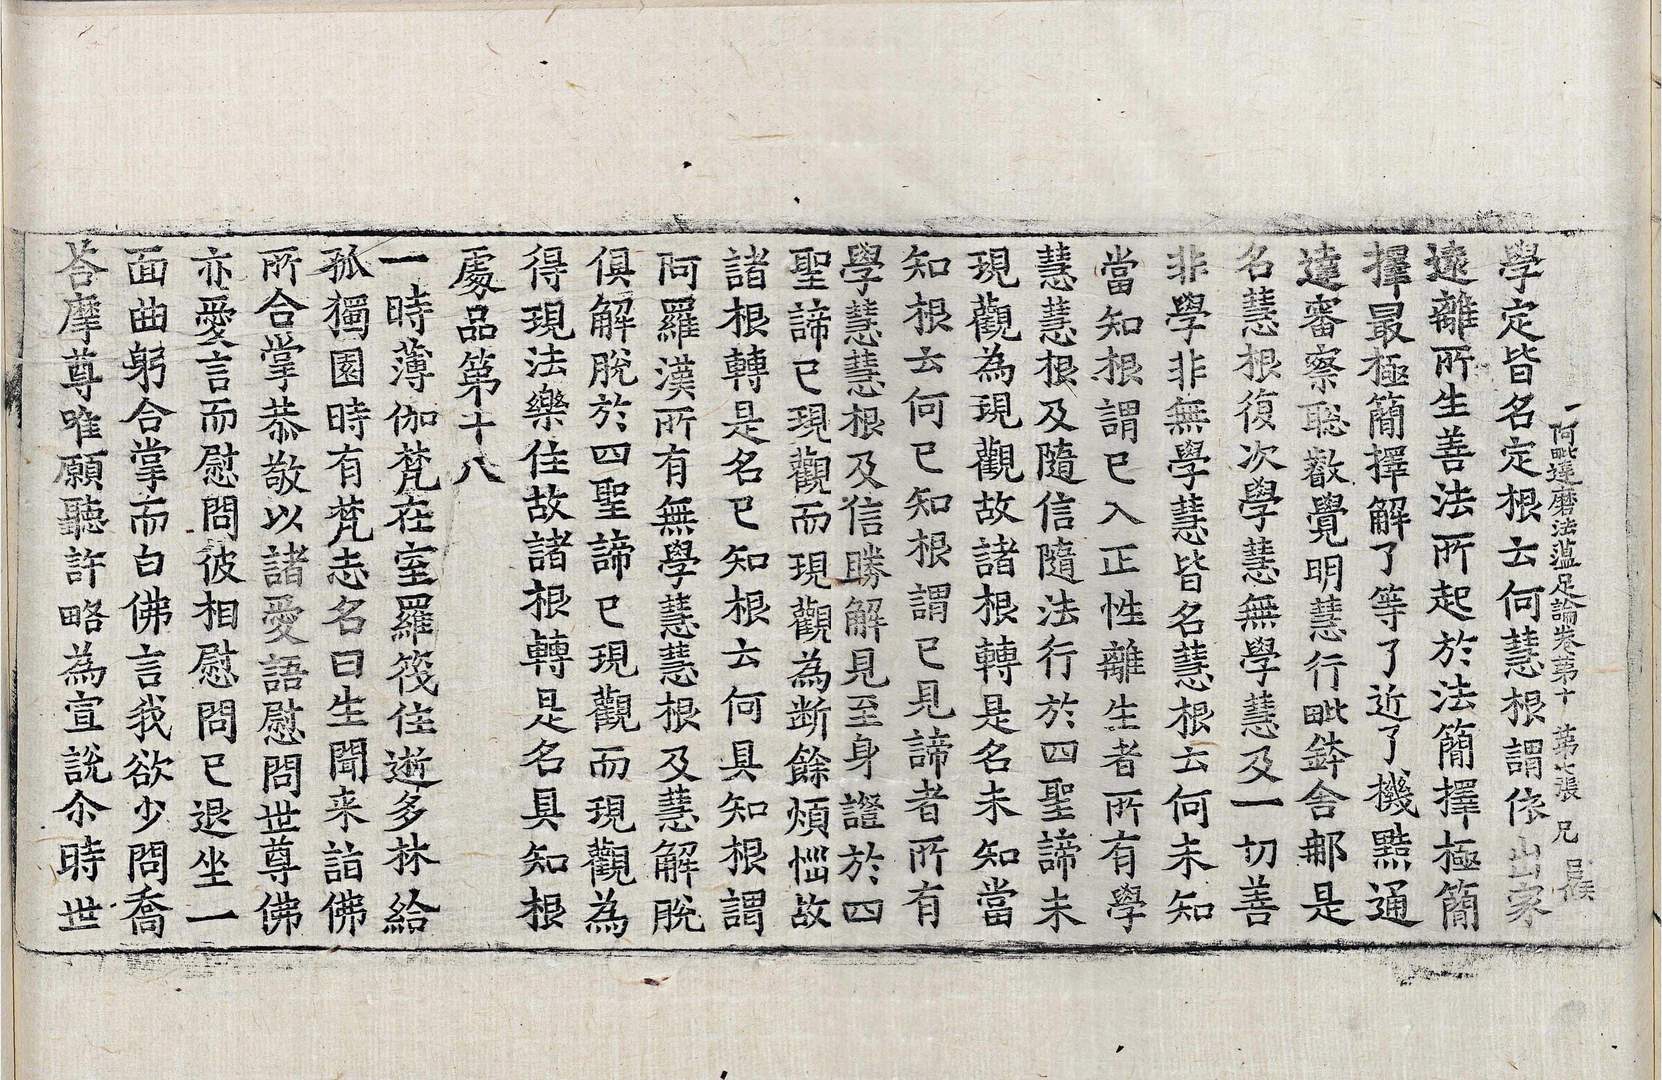 阿毗達磨法蘊足論卷第十 第七張 兄
學定皆名定根云何慧根謂依出家
遠離所生善法所起於法簡擇極簡
擇最極簡擇解了等了近了機黠通
達審察聡叡覺明慧行毗鉢舍那是
名慧根復次學慧無學慧及一切善
非學非無學慧皆名慧根云何未知
當知根謂已入正性離生者所有學
慧慧根及隨信隨法行於四聖諦未
現觀為現觀故諸根轉是名未知當
知根云何已知根謂已見諦者所有
學慧慧根及信勝解見至身證於四
聖諦已現觀而現觀為断餘煩惱故
諸根轉是名已知根云何具知根謂
阿羅漢所有無學慧慧根及慧解脫
俱解脫於四聖諦已現觀而現觀為
得現法樂住故諸根轉是名具知根
處品第十八
一時薄伽梵在室羅筏住逝多林給
孤獨園時有梵志名曰生聞来詣佛
所合掌恭敬以諸愛語慰問世尊佛
亦愛言而慰問彼相慰問已退坐一
面曲躬合掌而白佛言我欲少問喬
荅摩尊唯願聽許略為宣說尒時世